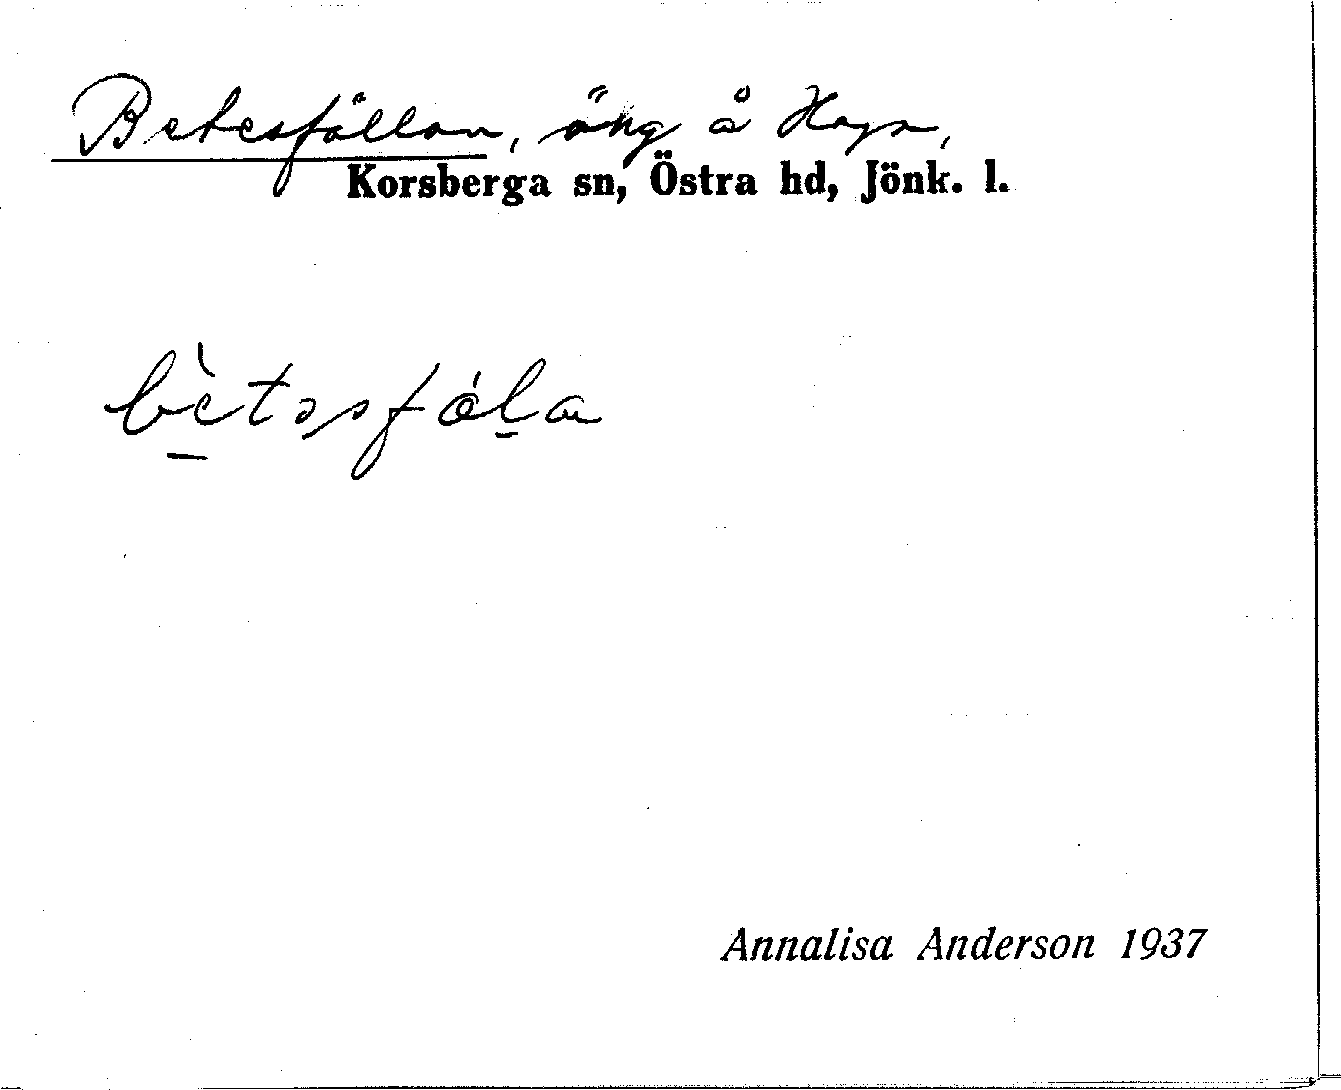 Betesfållan, äng å Haga,
Korsberga sn, Östra hd, Jönk. l.
bètəsfåla
Annalisa Anderson 1937